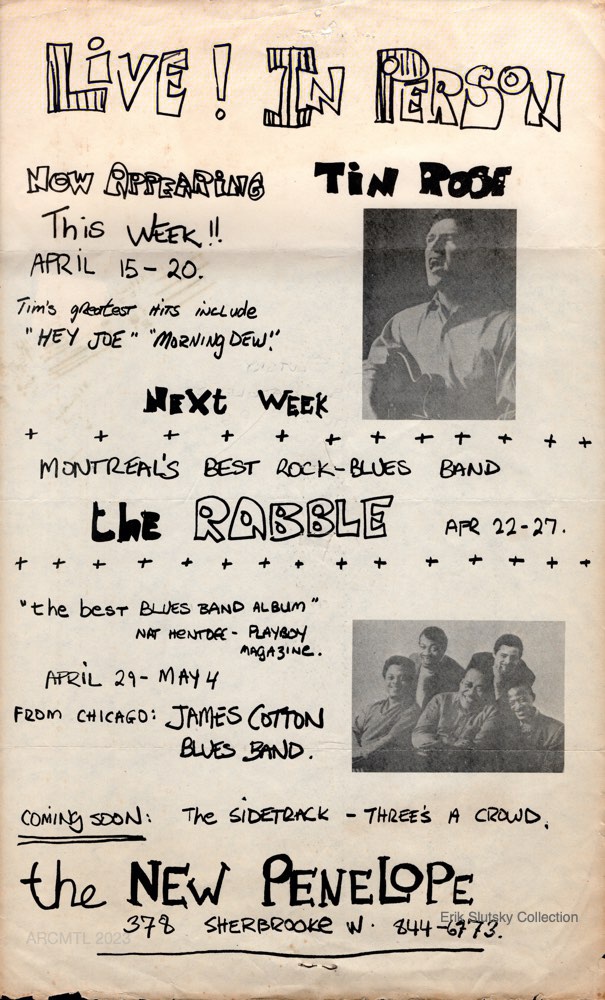 LiVE! IN PERSON
NOW APPEARING TiN ROSE
This WEEK!!
APRIL 15-20.
Tim's greatest HiTS iNCLUDE
"HEY JOE" "MORNiNG DEW."
NEXT WEEK
MONTREAL'S BEST ROCK-BLUES BAND
the RABBLE APR 22-27.
"the best BLUES BAND ALBUM"
NAT HENTOFF - PLAYBOY
MAGAZINE.
APRIL 29 - MAY 4
FROM CHICAGO: JAMES COTTON
BLUES BAND.
COMING SOON: The SiDETRACK - THREE'S A CROWD.
the NEW PENELOPE
378 SHERBROOKE W. 844-6773.
Erik Slutsky Collection
ARCMTL 2023